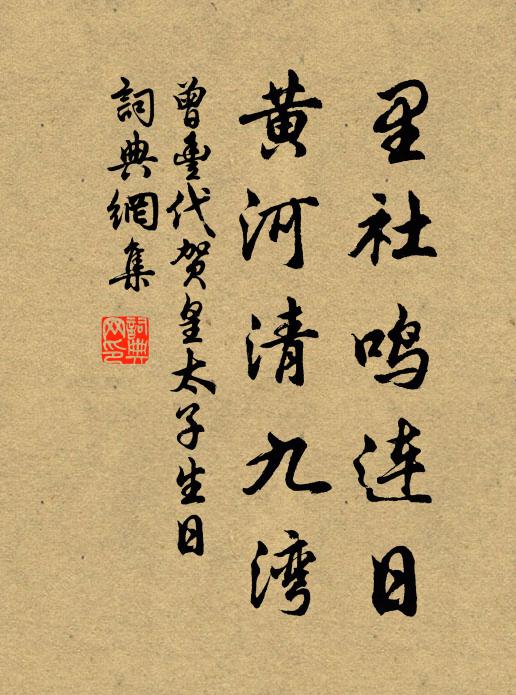 里社鸣连日
黄河清九湾
曾豐代贺皇太子生日
詞典網集
詞典
网印